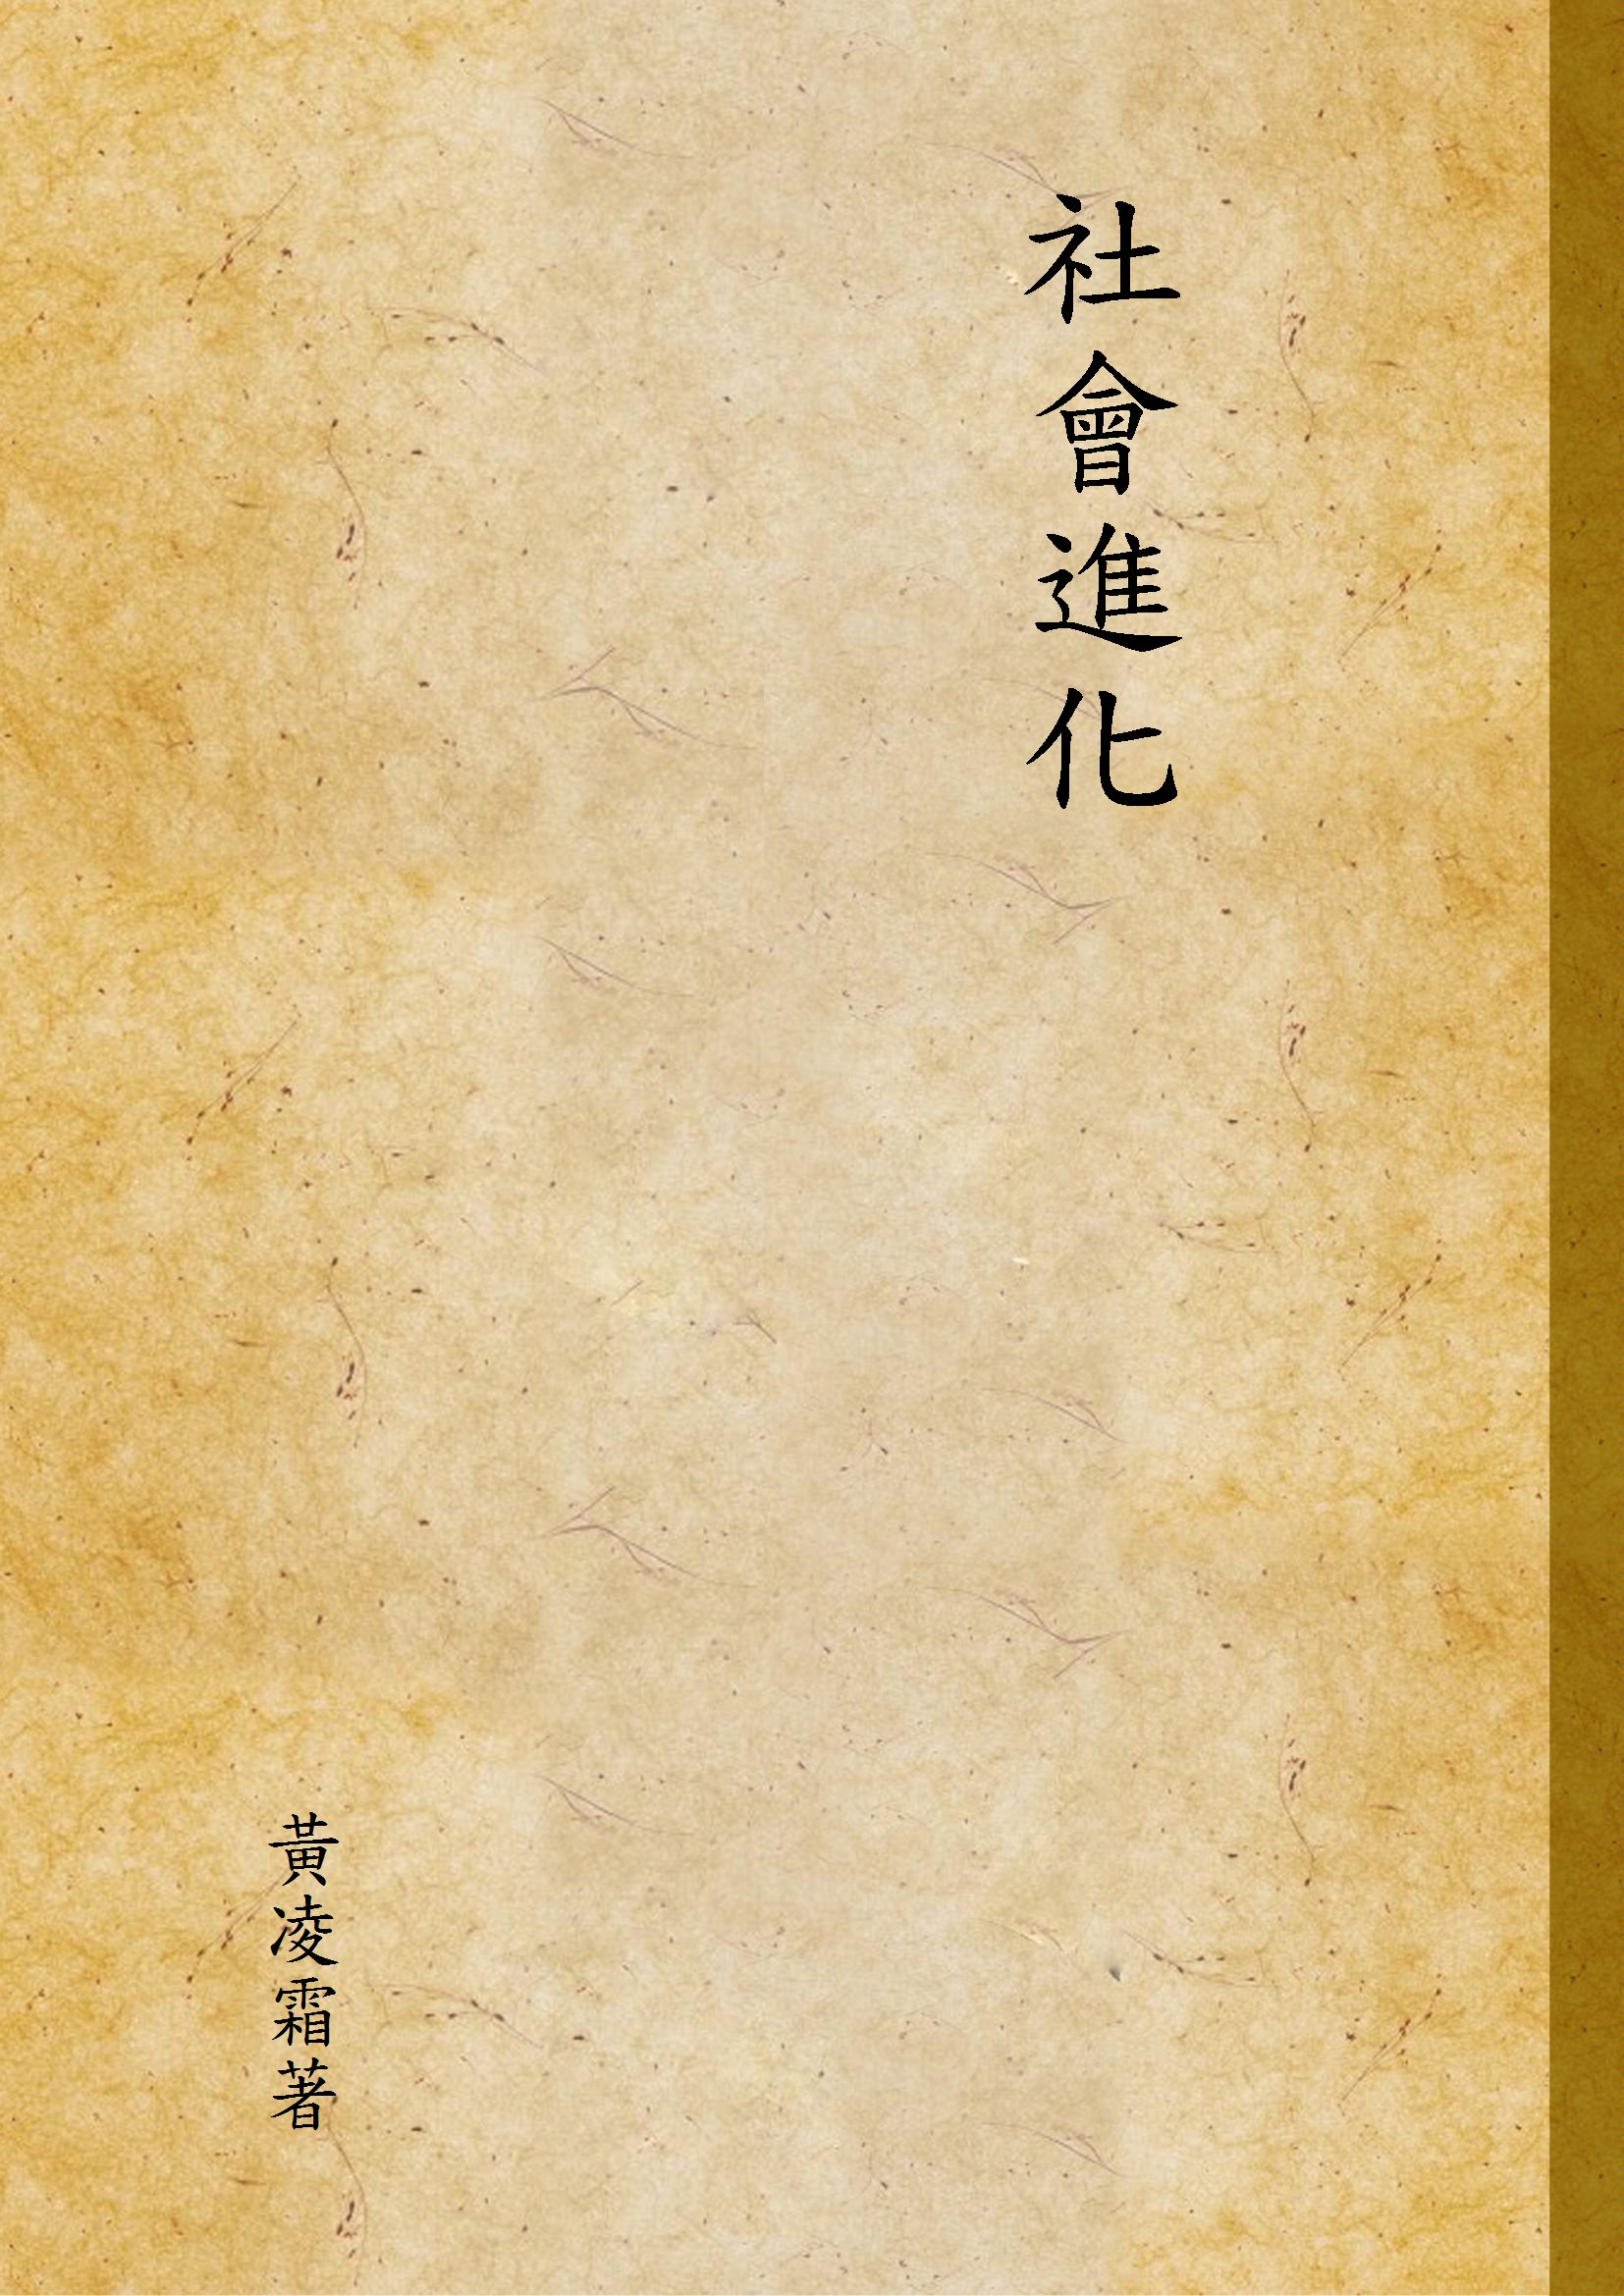 社會進化
黃凌霜著